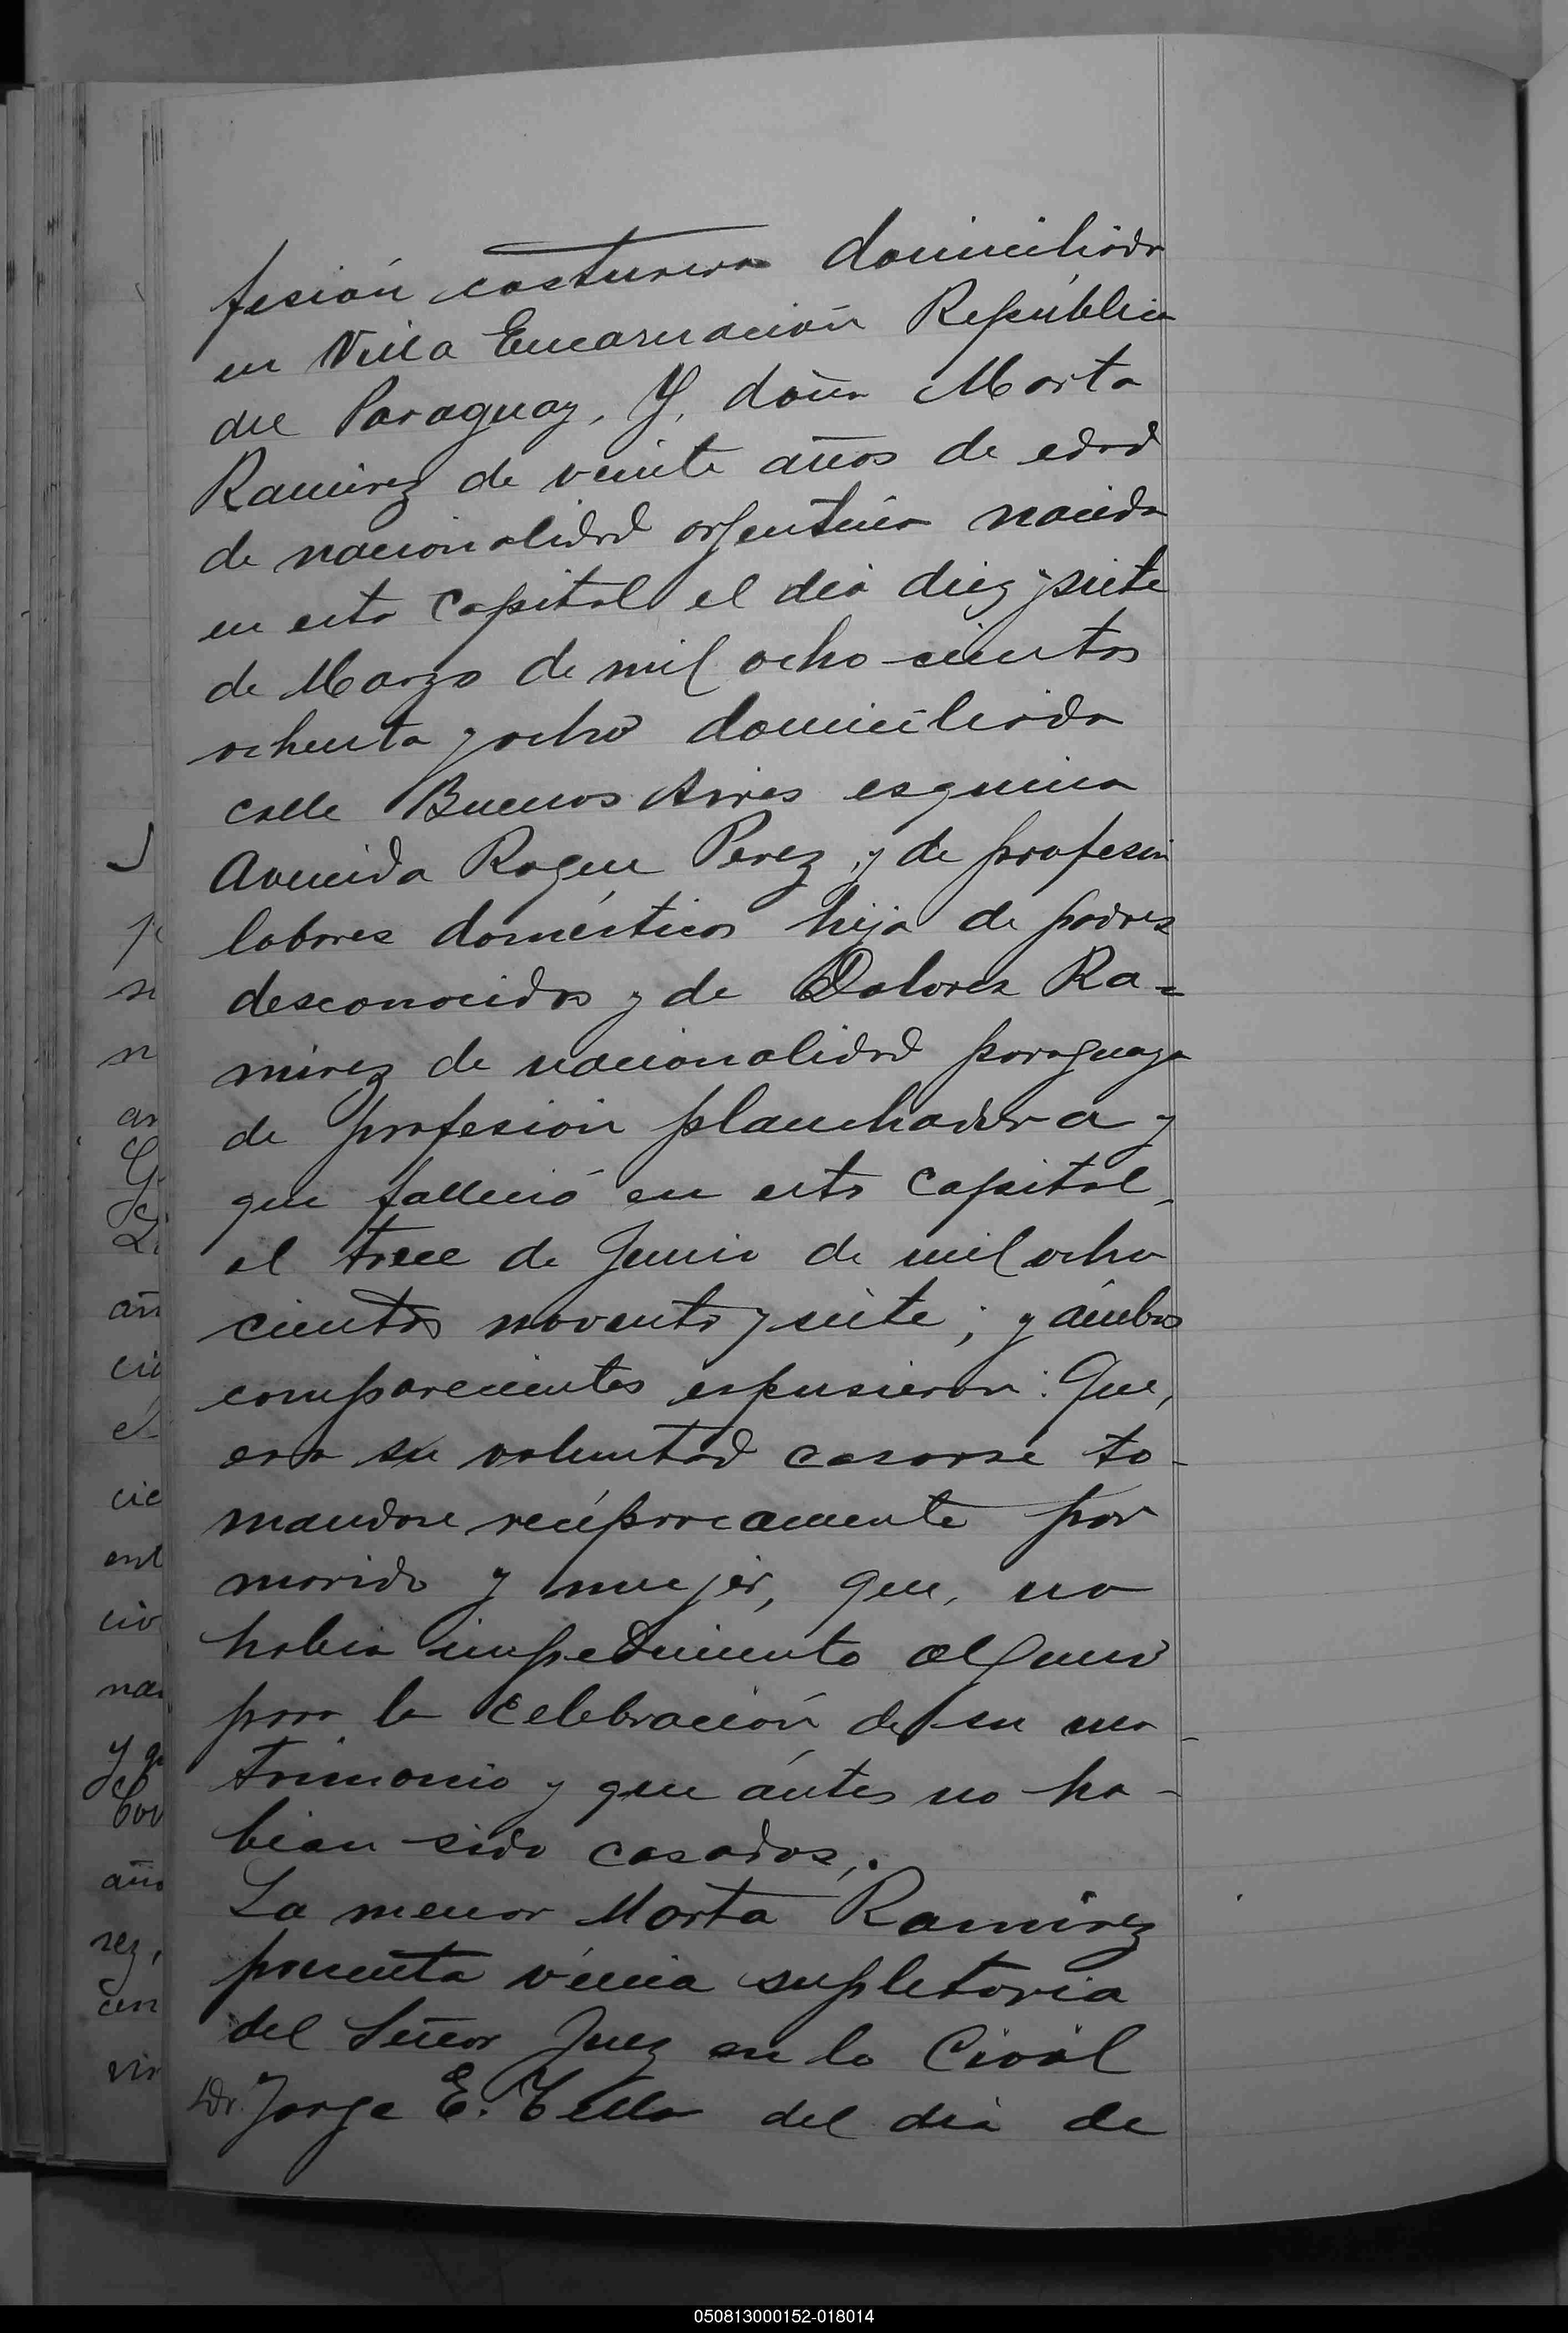 fesión costurera domiciliada
en Villa Encarnación República
del Paraguay. Y, doña Marta
Ramirez de veinte años de edad
de nacionalidad argentina nacida
en esta Capital el día diez y siete
de Marzo de mil ocho cientos
ochenta y ocho domiciliada
calle Buenos Aires esquina
Avenida Roque Perez, y de profesión
labores domésticos hija de padres
desconocidos y de Dolores Ra=
mirez de nacionalidad paraguaya
de profesión planchadora y
que falleció en esta Capital,
el trece de Junio de mil ocho
cientos noventa y siete; y ámbos
comparecientes expusieron: Que,
era su voluntad casarse to-
mandose recíprocamente por
marido y mujer, que, no
habia impedimento alguno
para la celebración de su ma-
trimonio y que ántes no ha-
bian sido casados,.
La menor Marta Ramirez
presenta vénia supletoria
del Señor Juez en lo Civil
Dr. Jorge E. Tello del dia de
050813000152-018014